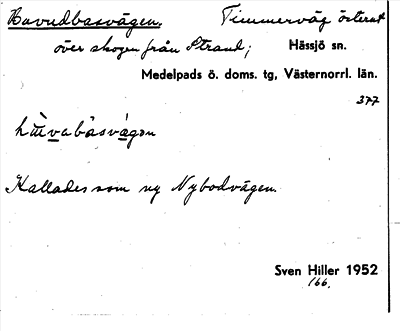 Huvudbasvägen. Timmerväg österut
över skogen från Strand; Hässjö sn.
Medelpads ö. doms. tg, Västernorrl. län.
377
Kallades som ny Nybodvägen.
Sven Hiller 1952
166.